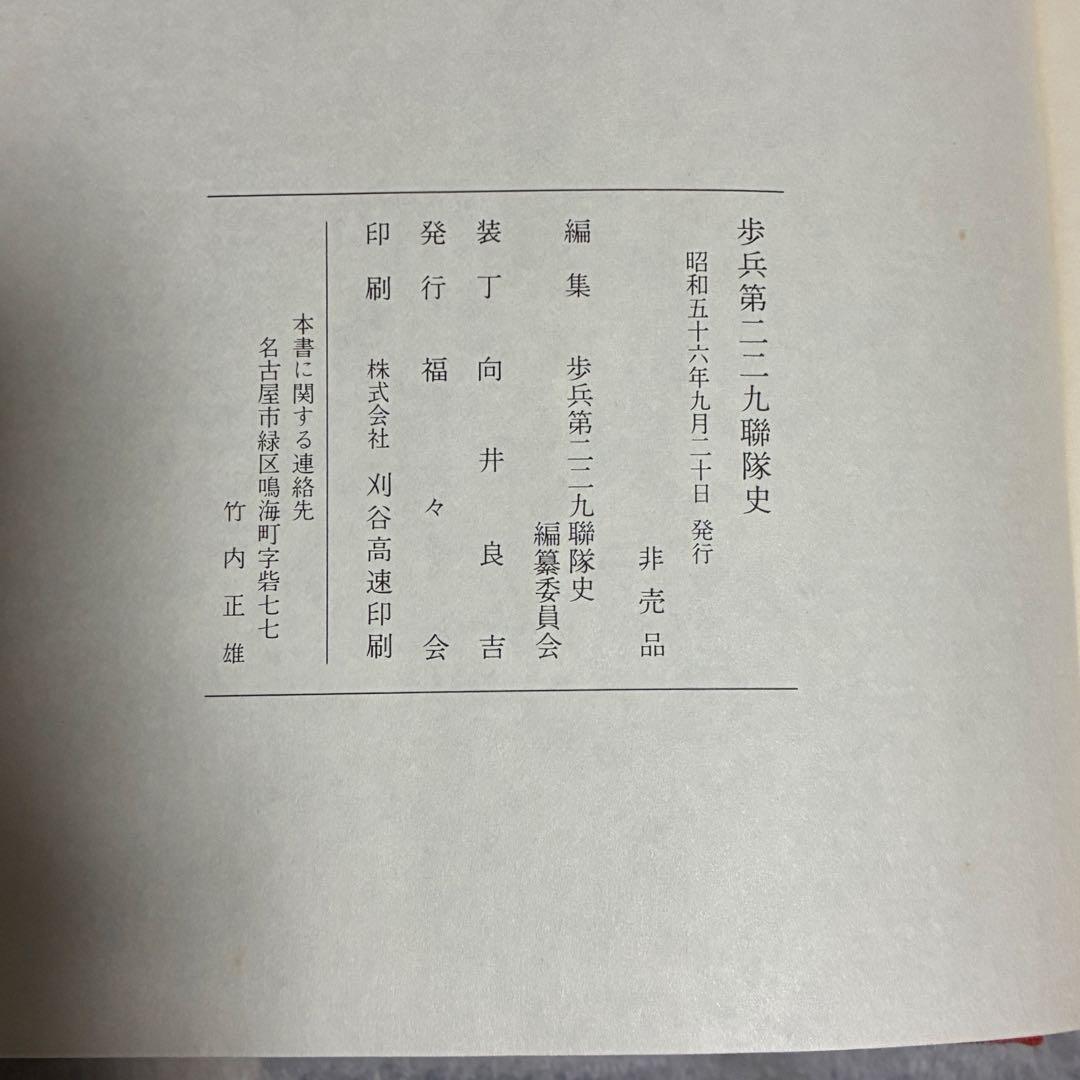 歩兵第二二九聯隊史
昭和五十六年九月二十日 発行
非売品
編集 歩兵第二二九聯隊史
編纂委員会
装丁 向井良吉
発行 福々会
印刷 株式会社 刈谷高速印刷
本書に関する連絡先
名古屋市緑区鳴海町字砦七七
竹内正雄